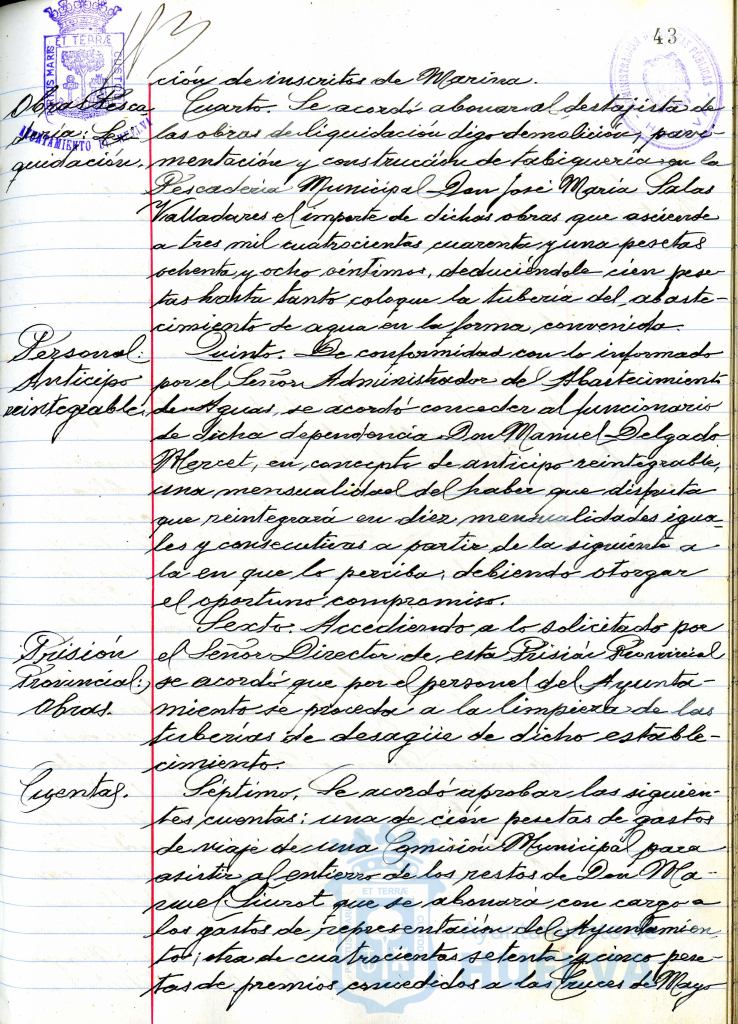 43
ción de inscritos de Marina.
Obras Pesca
dería: Li
quidación.
AYUNTAMIENTO DE HUELVA
Cuarto. Se acordó abonar al destajista de
las obras de liquidación digo demolición, pavi-
mentación y construcción de tabiquería en la
Pescadería Municipal Don José María Salas
Valladares el importe de dichas obras que asciende
a tres mil cuatrocientas cuarenta y una pesetas
ochenta y ocho céntimos, deduciéndole cien pese-
tas hasta tanto coloque la tubería del abaste-
cimiento de agua en la forma convenida.
Personal:
Anticipo
reintegrable.
Quinto. De conformidad con lo informado
por el Señor Administrador de Abastecimiento
de Aguas, se acordó conceder al funcionario
de dicha dependencia Don Manuel Delgado
Mercet, en concepto de anticipo reintegrable,
una mensualidad del haber que disfruta
que reintegrará en diez mensualidades igua-
les y consecutivas a partir de la siguiente a
la en que lo perciba, debiendo otorgar
el oportuno compromiso.
Prisión
Provincial:
Obras.
Sexto. Accediendo a lo solicitado por
el Señor Director de esta Prisión Provincial
se acordó que por el personal del Ayunta-
miento se proceda a la limpieza de las
tuberías de desagüe de dicho estable-
cimiento.
Cuentas.
Séptimo. Se acordó aprobar las siguien-
tes cuentas: una de cien pesetas de gastos
de viaje de una Comisión Municipal para
asistir al entierro de los restos de Don Ma-
nuel Siurot que se abonará con cargo a
los gastos de representación del Ayuntamien-
to; otra de cuatrocientas setenta y cinco pese-
tas de premios concedidos a las Cruces de Mayo
Ayuntamiento de
HUELVA